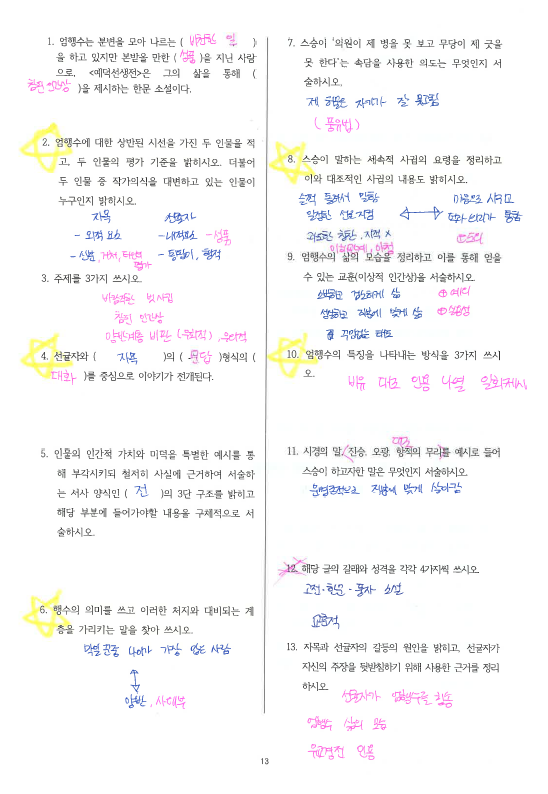 1. 엄행수는 분변을 모아 나르는 (비천한 일)
을 하고 있지만 본받을 만한 (성품)을 지닌 사람
으로, <예덕선생전>은 그의 삶을 통해 (
참된 인간상)을 제시하는 한문 소설이다.
2. 엄행수에 대한 상반된 시선을 가진 두 인물을 적
고, 두 인물의 평가 기준을 밝히시오. 더불어
두 인물 중 작가의식을 대변하고 있는 인물이
누구인지 밝히시오.
자목 선귤자
- 외적 요소 - 내적요소 - 성품
- 신분, 거처,
3. 주제를 3가지 쓰시오.
바람직한 벗 사귐
참된 인간상
양반계층 비판
4. 선귤자와 (자목)의 (문답)형식의 (
대화)를 중심으로 이야기가 전개된다.
5. 인물의 인간적 가치와 미덕을 특별한 예시를 통
해 부각시키되 철저히 사실에 근거하여 서술하
는 서사 양식인 (전)의 3단 구조를 밝히고
해당 부분에 들어가야할 내용을 구체적으로 서
술하시오.
6. 행수의 의미를 쓰고 이러한 처지와 대비되는 계
층을 가리키는 말을 찾아 쓰시오.
막일꾼 중 나이가 가장 많은 사람
양반, 사대부
7. 스승이 '의원이 제 병을 못 보고 무당이 제 굿을
못 한다'는 속담을 사용한 의도는 무엇인지 서
술하시오.
제 허물은 자기가 잘 모른다
(풍유법)
8. 스승이 말하는 세속적 사귐의 요령을 정리하고
이와 대조적인 사귐의 내용도 밝히시오.
마음으로 사귀고
9. 엄행수의 삶의 모습을 정리하고 이를 통해 얻을
수 있는 교훈(이상적 인간상)을 서술하시오.
소박하고 검소하게 삶
분수에 맞게 삶
태도
10. 엄행수의 특징을 나타내는 방식을 3가지 쓰시
오.
비유 대조 인용 나열 일화제시
대조
11. 시경의 말, 진승, 오광, 항적의 무리를 예시로 들어
스승이 하고자한 말은 무엇인지 서술하시오.
분수에 맞게 살아감
12. 해당 글의 갈래와 성격을 각각 4가지씩 쓰시오.
고전·한문·풍자 소설
교훈적
13. 자목과 선귤자의 갈등의 원인을 밝히고, 선귤자가
자신의 주장을 뒷받침하기 위해 사용한 근거를 정리
하시오.
선귤자가 엄행수를 칭송
엄행수 삶의 모습
유교경전 인용
13